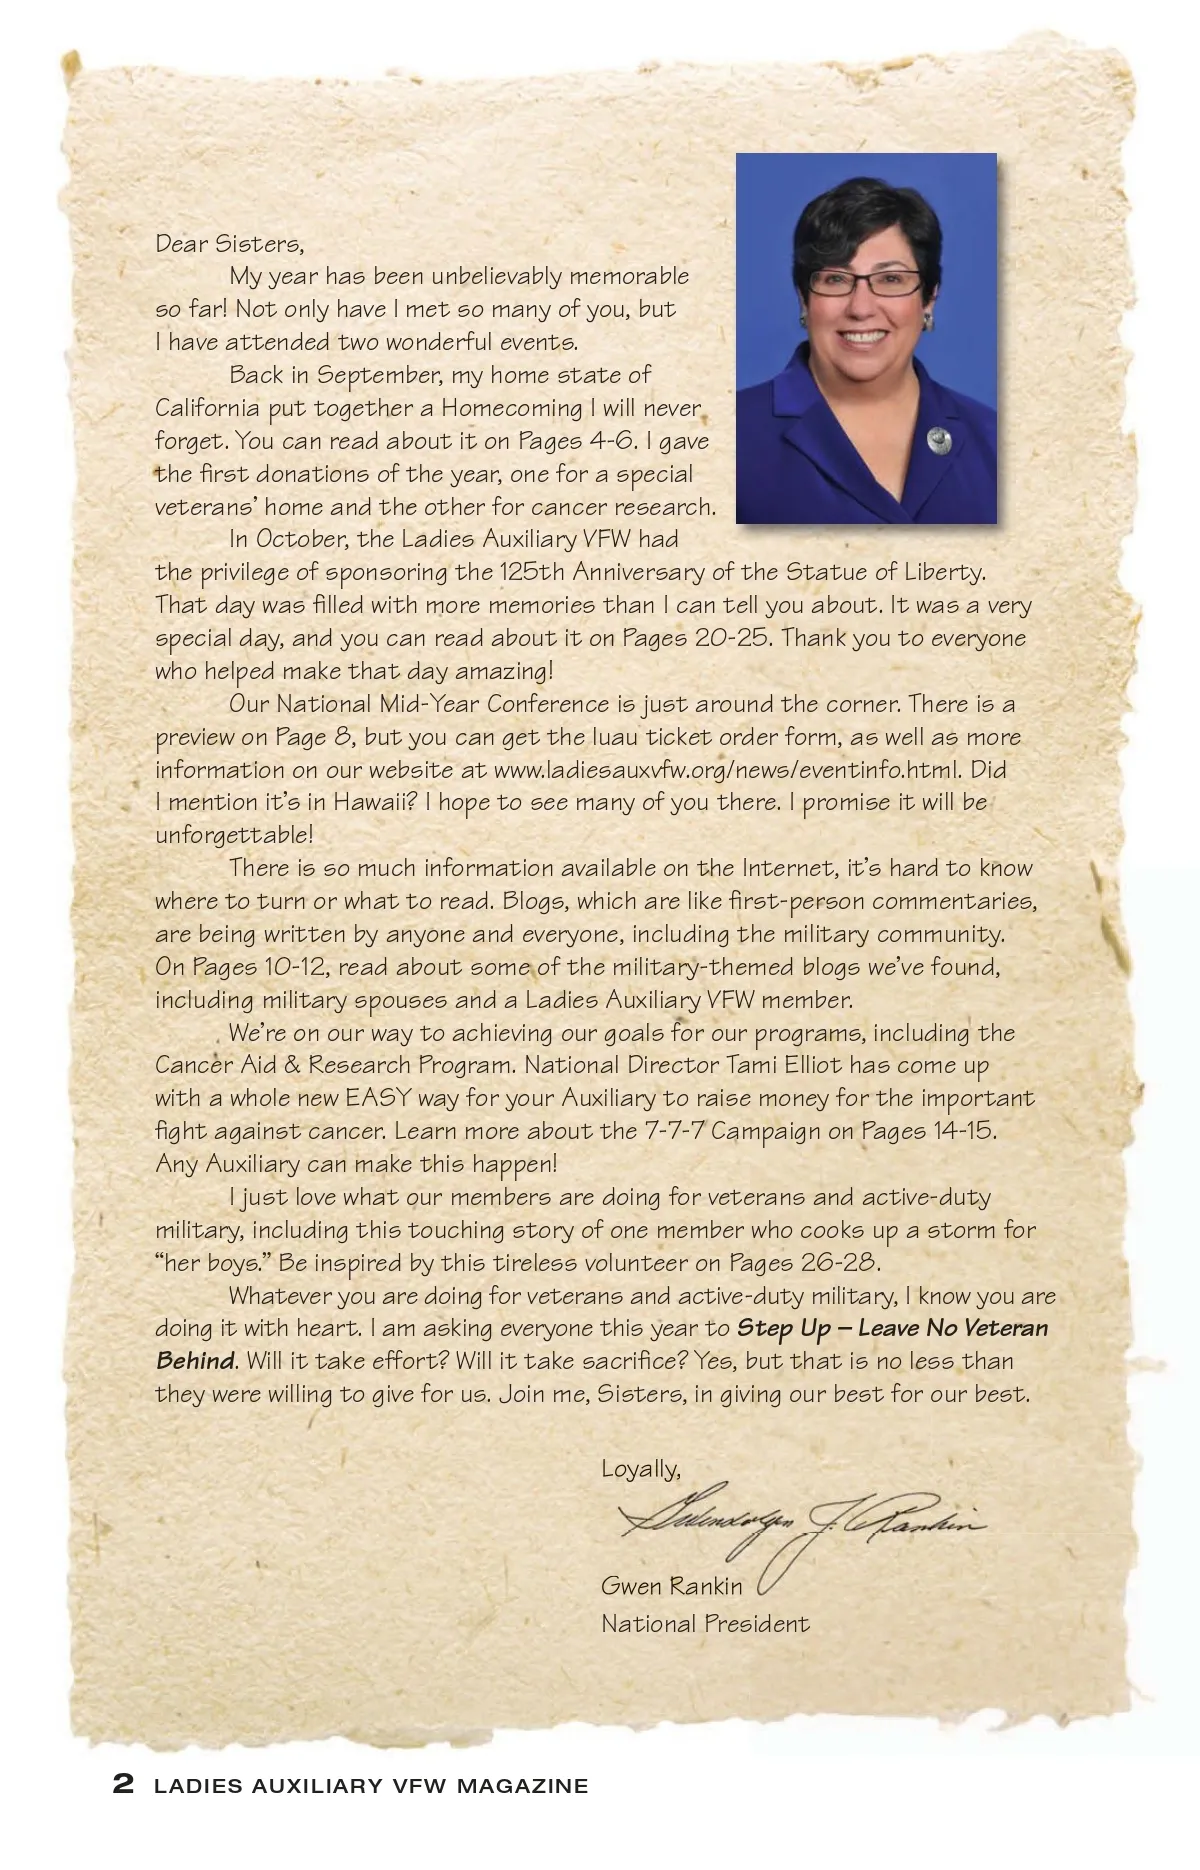 Dear Sisters,
My year has been unbelievably memorable
so far! Not only have I met so many of you, but
I have attended two wonderful events.
Back in September, my home state of
California put together a Homecoming I will never
forget. You can read about it on Pages 4-6. I gave
the first donations of the year, one for a special
veterans’ home and the other for cancer research.
In October, the Ladies Auxiliary VFW had
the privilege of sponsoring the 125th Anniversary of the Statue of Liberty.
That day was filled with more memories than I can tell you about. It was a very
special day, and you can read about it on Pages 20-25. Thank you to everyone
who helped make that day amazing!
Our National Mid-Year Conference is just around the corner. There is a
preview on Page 8, but you can get the luau ticket order form, as well as more
information on our website at www.ladiesauxvfw.org/news/eventinfo.html. Did
I mention it’s in Hawaii? I hope to see many of you there. I promise it will be
unforgettable!
There is so much information available on the Internet, it’s hard to know
where to turn or what to read. Blogs, which are like first-person commentaries,
are being written by anyone and everyone, including the military community.
On Pages 10-12, read about some of the military-themed blogs we’ve found,
including military spouses and a Ladies Auxiliary VFW member.
We’re on our way to achieving our goals for our programs, including the
Cancer Aid & Research Program. National Director Tami Elliot has come up
with a whole new EASY way for your Auxiliary to raise money for the important
fight against cancer. Learn more about the 7-7-7 Campaign on Pages 14-15.
Any Auxiliary can make this happen!
I just love what our members are doing for veterans and active-duty
military, including this touching story of one member who cooks up a storm for
“her boys.” Be inspired by this tireless volunteer on Pages 26-28.
Whatever you are doing for veterans and active-duty military, I know you are
doing it with heart. I am asking everyone this year to Step Up – Leave No Veteran
Behind. Will it take effort? Will it take sacrifice? Yes, but that is no less than
they were willing to give for us. Join me, Sisters, in giving our best for our best.
Loyally,
Gwendolyn J. Rankin
Gwen Rankin
National President
2 LADIES AUXILIARY VFW MAGAZINE